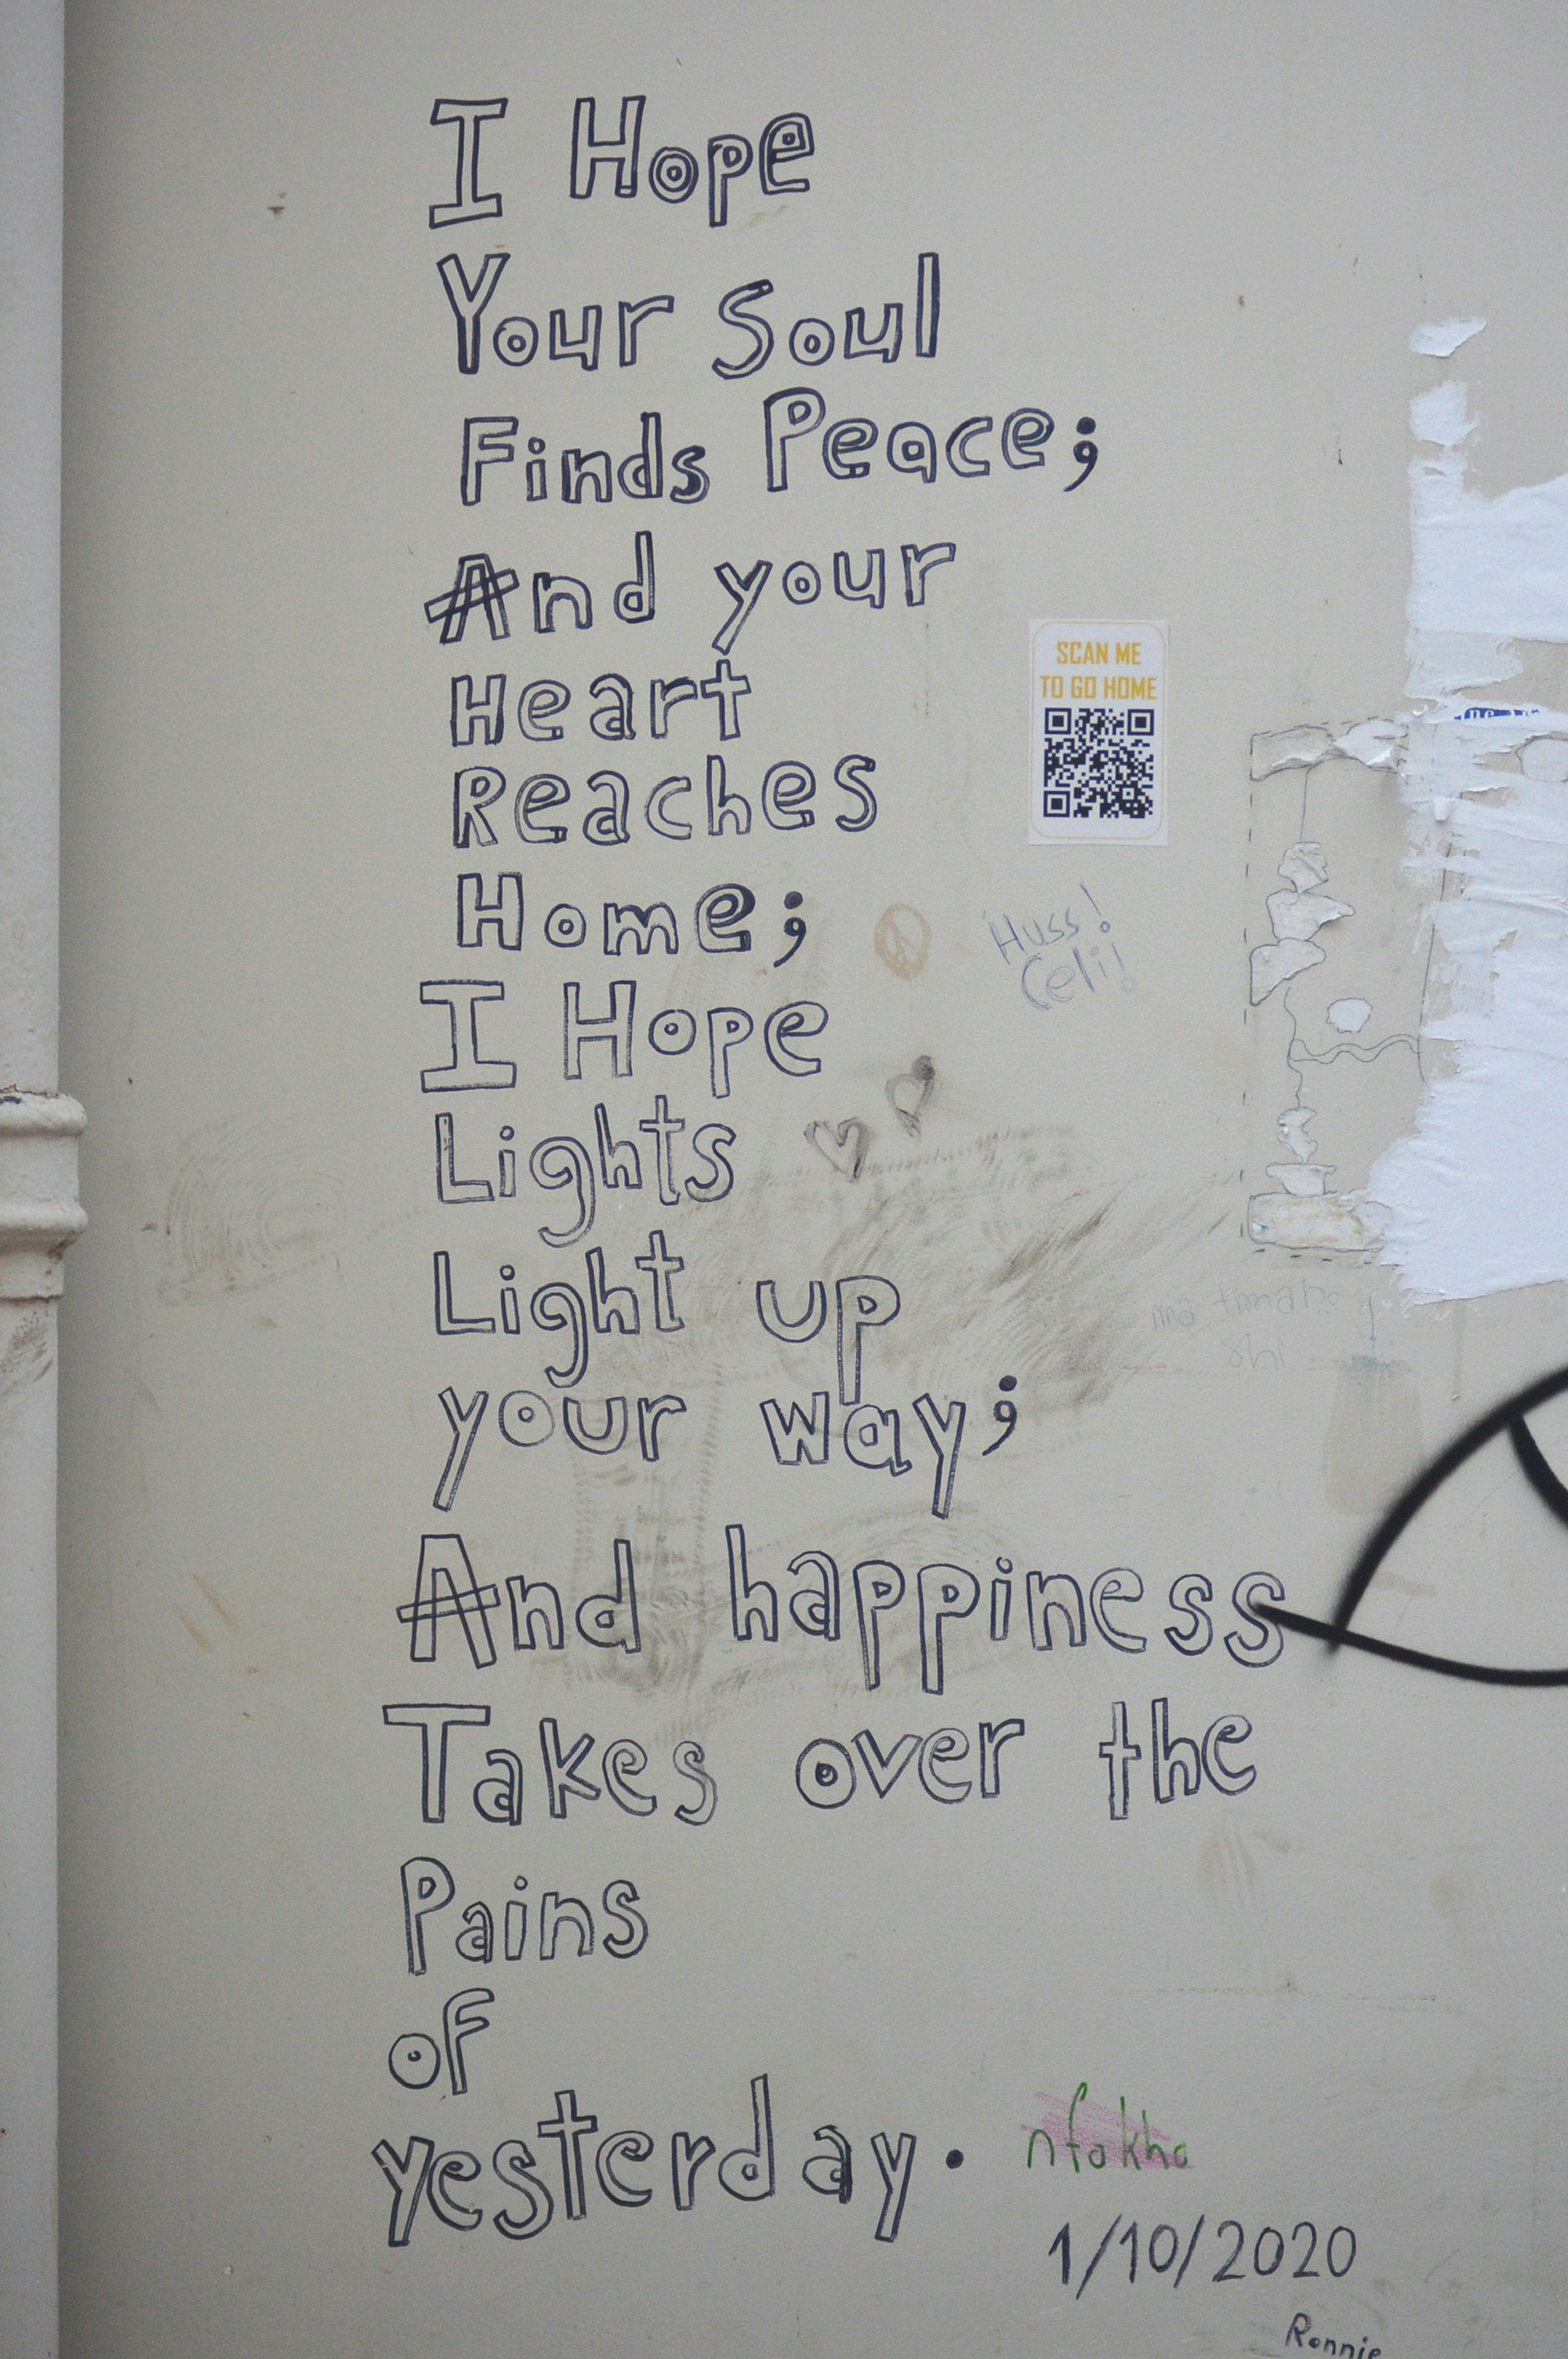 I Hope
Your Soul
Finds Peace;
And your
Heart
Reaches
Home;
I Hope
Lights
Light up
your way;
And happiness
Takes over the
Pains
of
yesterday.
SCAN ME
TO GO HOME
Huss!
Celi!
1/10/2020
Ronnie